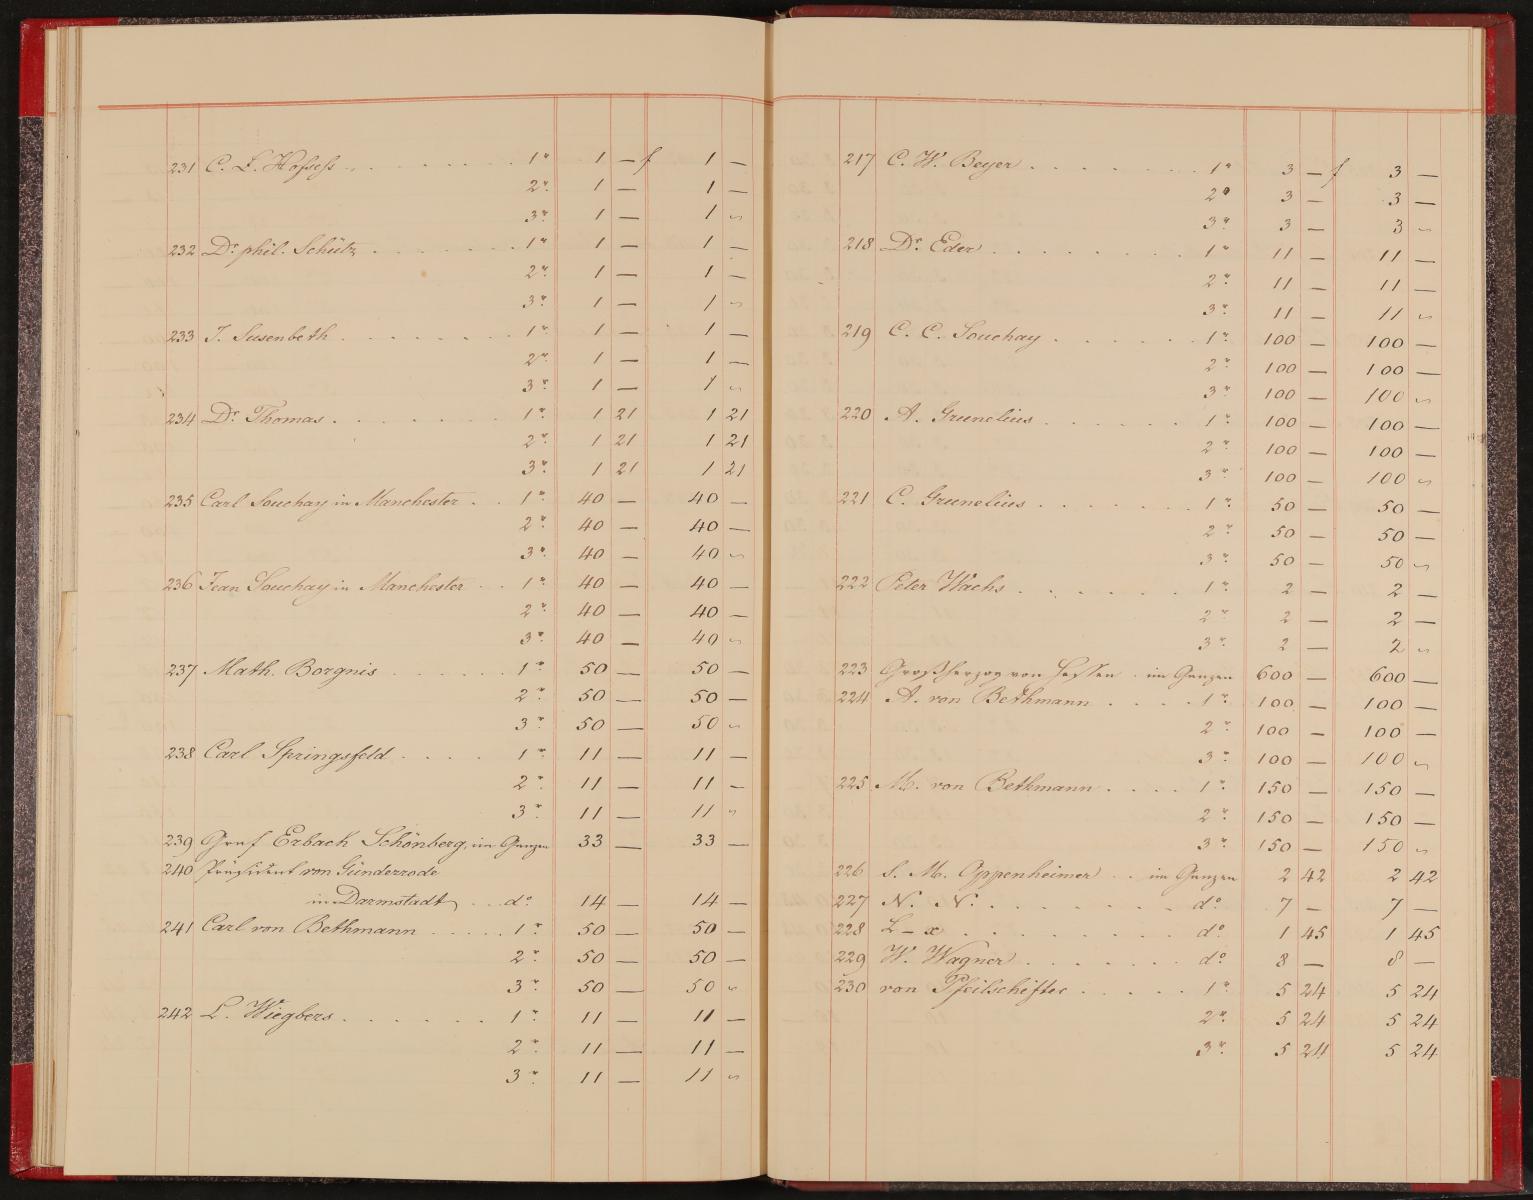 231 C. L. Hofsess . . . . . . . . 1r 1 — f 1 —
2r. 1 — 1 —
3r. 1 — 1 ~
232 Dr. phil. Schütz . . . . . . . 1r 1 — 1 —
2r. 1 — 1 —
3r. 1 — 1 ~
233 J. Susenbeth . . . . . . . . 1r. 1 — 1 —
2r. 1 — 1 —
3r. 1 — 1 ~
234 Dr. Thomas . . . . . . . . 1r. 1 21 1 21
2r. 1 21 1 21
3r. 1 21 1 21
235 Carl Souchay in Manchester . . 1r. 40 — 40 —
2r. 40 — 40 —
3r. 40 — 40 ~
236 Jean Souchay in Manchester . . 1r. 40 — 40 —
2r. 40 — 40 —
3r. 40 — 40 ~
237 Math. Borgnis . . . . . . 1r 50 — 50 —
2r. 50 — 50 —
3r. 50 — 50 ~
238 Carl Springsfeld . . . . 1r 11 — 11 —
2r. 11 — 11 —
3r. 11 — 11 ~
239 Graf Erbach Schönberg, im Ganzen 33 — 33 —
240 Präsident von Günderrode
in Darmstadt . . do. 14 — 14 —
241 Carl von Bethmann . . . . . 1r 50 — 50 —
2r. 50 — 50 —
3r. 50 — 50 ~
242 L. Wiegbers . . . . . . . 1r. 11 — 11 —
2r. 11 — 11 —
3r. 11 — 11 ~
217 C. W. Beyer . . . . . . . 1r 3 — f 3 —
2r 3 — 3 —
3r. 3 — 3 ~
218 Dr. Eder . . . . . . . . 1r 11 — 11 —
2r. 11 — 11 —
3r. 11 — 11 ~
219 C. C. Souchay . . . . . . 1r. 100 — 100 —
2r. 100 — 100 —
3r. 100 — 100 ~
220 A. Grunelius . . . . . . 1r. 100 — 100 —
2r. 100 — 100 —
3r. 100 — 100 ~
221 C. Grunelius . . . . . . . 1r. 50 — 50 —
2r. 50 — 50 —
3r. 50 — 50 ~
222 Peter Wachs . . . . . . 1r. 2 — 2 —
2r. 2 — 2 —
3r. 2 — 2 ~
223 Großherzog von Hessen . im Ganzen 600 — 600 —
224 A. von Bethmann . . . . 1r. 100 — 100 —
2r. 100 — 100 —
3r. 100 — 100 ~
225 M. von Bethmann . . . . 1r. 150 — 150 —
2r. 150 — 150 —
3r. 150 — 150 ~
226 S. M. Oppenheimer . . im Ganzen 2 42 2 42
227 N. N. . . . . . . . . do. 7 — 7 —
228 L - x . . . . . . . . . do. 1 45 1 45
229 W. Wagner . . . . . . . do. 8 — 8 —
230 von Pfeilschifter . . . . . 1r. 5 24 5 24
2r. 5 24 5 24
3r. 5 24 5 24